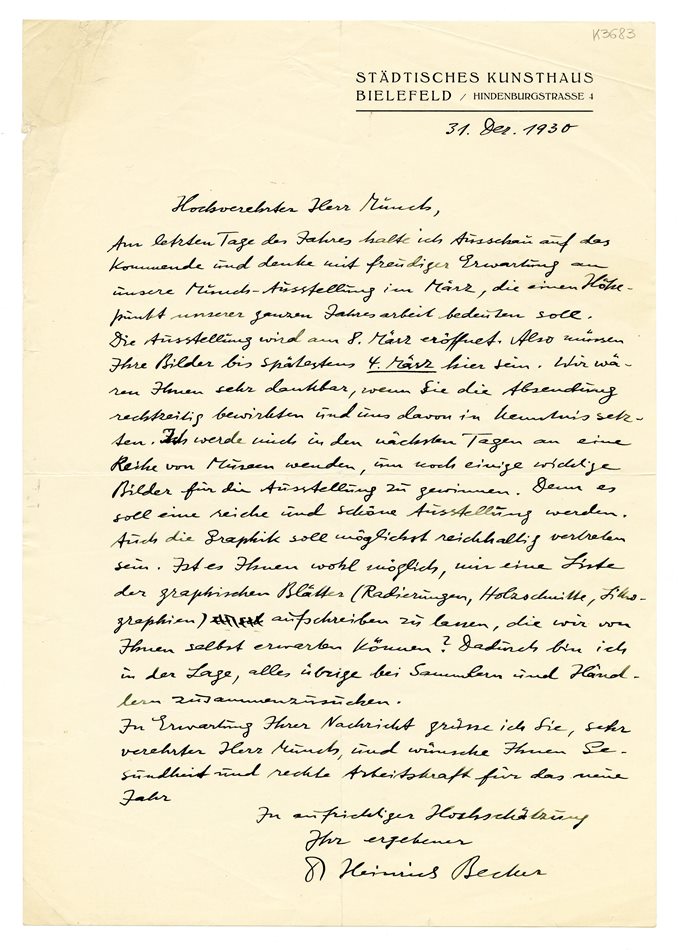 K3683
STÄDTISCHES KUNSTHAUS
BIELEFELD / HINDENBURGSTRASSE 4
31. Dez. 1930
Hochverehrter Herr Munch,
Am letzten Tage des Jahres halte ich Ausschau auf das
Kommende und denke mit freudiger Erwartung an
unsere Munch-Ausstellung im März, die einen Höhe-
punkt unserer ganzen Jahresarbeit bedeuten soll.
Die Ausstellung wird am 8. März eröffnet. Also müssen
Ihre Bilder bis spätestens 4. März hier sein. Wir wä-
ren Ihnen sehr dankbar, wenn Sie die Absendung
rechtzeitig bewirkten und uns davon in Kenntnis setz-
ten. Ich werde mich in den nächsten Tagen an eine
Reihe von Museen wenden, um noch einige wichtige
Bilder für die Ausstellung zu gewinnen. Denn es
soll eine reiche und schöne Ausstellung werden.
Auch die Graphik soll möglichst reichhaltig vertreten
sein. Ist es Ihnen wohl möglich, mir eine Liste
der graphischen Blätter (Radierungen, Holzschnitte, Litho-
graphien) aufschreiben zu lassen, die wir von
Ihnen selbst erwarten können? Dadurch bin ich
in der Lage, alles übrige bei Sammlern und Händ-
lern zusammenzusuchen.
In Erwartung Ihrer Nachricht grüsse ich Sie, sehr
verehrter Herr Munch, und wünsche Ihnen Ge-
sundheit und rechte Arbeitskraft für das neue
Jahr
In aufrichtiger Hochschätzung
Ihr ergebener
Heinrich Becker